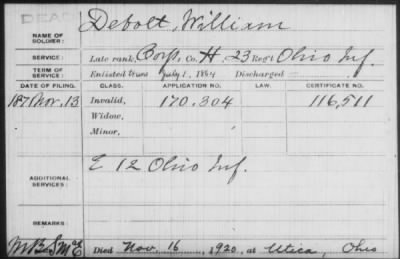 DEAD
Debolt, William
NAME OF SOLDIER:
SERVICE: Late rank, Corp, Co. H, 23 Reg't Ohio Inf.
TERM OF SERVICE: Enlisted July 1, 1864 Discharged
DATE OF FILING. CLASS. APPLICATION NO. LAW. CERTIFICATE NO.
1871 Nov. 13 Invalid, 170.304 116,511
Widow,
Minor,
ADDITIONAL SERVICES: E 12 Ohio Inf.
REMARKS:
Died Nov. 16, 1920, at Utica, Ohio